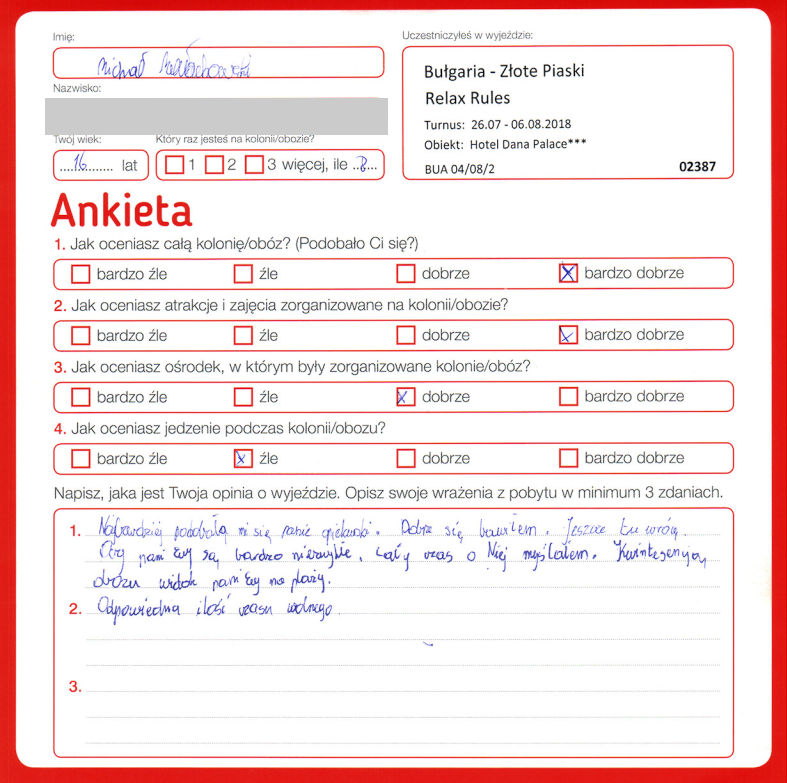 Imię:
Michał
Nazwisko:
Twój wiek:
16 lat
Który raz jesteś na kolonii/obozie?
1 2 3 więcej, ile ..8...
Uczestniczyłeś w wyjeździe:
Bułgaria - Złote Piaski
Relax Rules
Turnus: 26.07 - 06.08.2018
Obiekt: Hotel Dana Palace***
BUA 04/08/2 02387
Ankieta
1. Jak oceniasz całą kolonię/obóz? (Podobało Ci się?)
bardzo źle źle dobrze bardzo dobrze
2. Jak oceniasz atrakcje i zajęcia zorganizowane na kolonii/obozie?
bardzo źle źle dobrze bardzo dobrze
3. Jak oceniasz ośrodek, w którym były zorganizowane kolonie/obóz?
bardzo źle źle dobrze bardzo dobrze
4. Jak oceniasz jedzenie podczas kolonii/obozu?
bardzo źle źle dobrze bardzo dobrze
Napisz, jaka jest Twoja opinia o wyjeździe. Opisz swoje wrażenia z pobytu w minimum 3 zdaniach.
1. Najbardziej podobały mi się panie opiekunki. Dobrze się bawiłem. Jeszcze tu wrócę.
pani Ewy są bardzo niezwykłe. Cały czas o Niej myślałem. Kwintesencją
obozu widok pani Ewy na plaży.
2. Odpowiednia ilość czasu wolnego.
3.